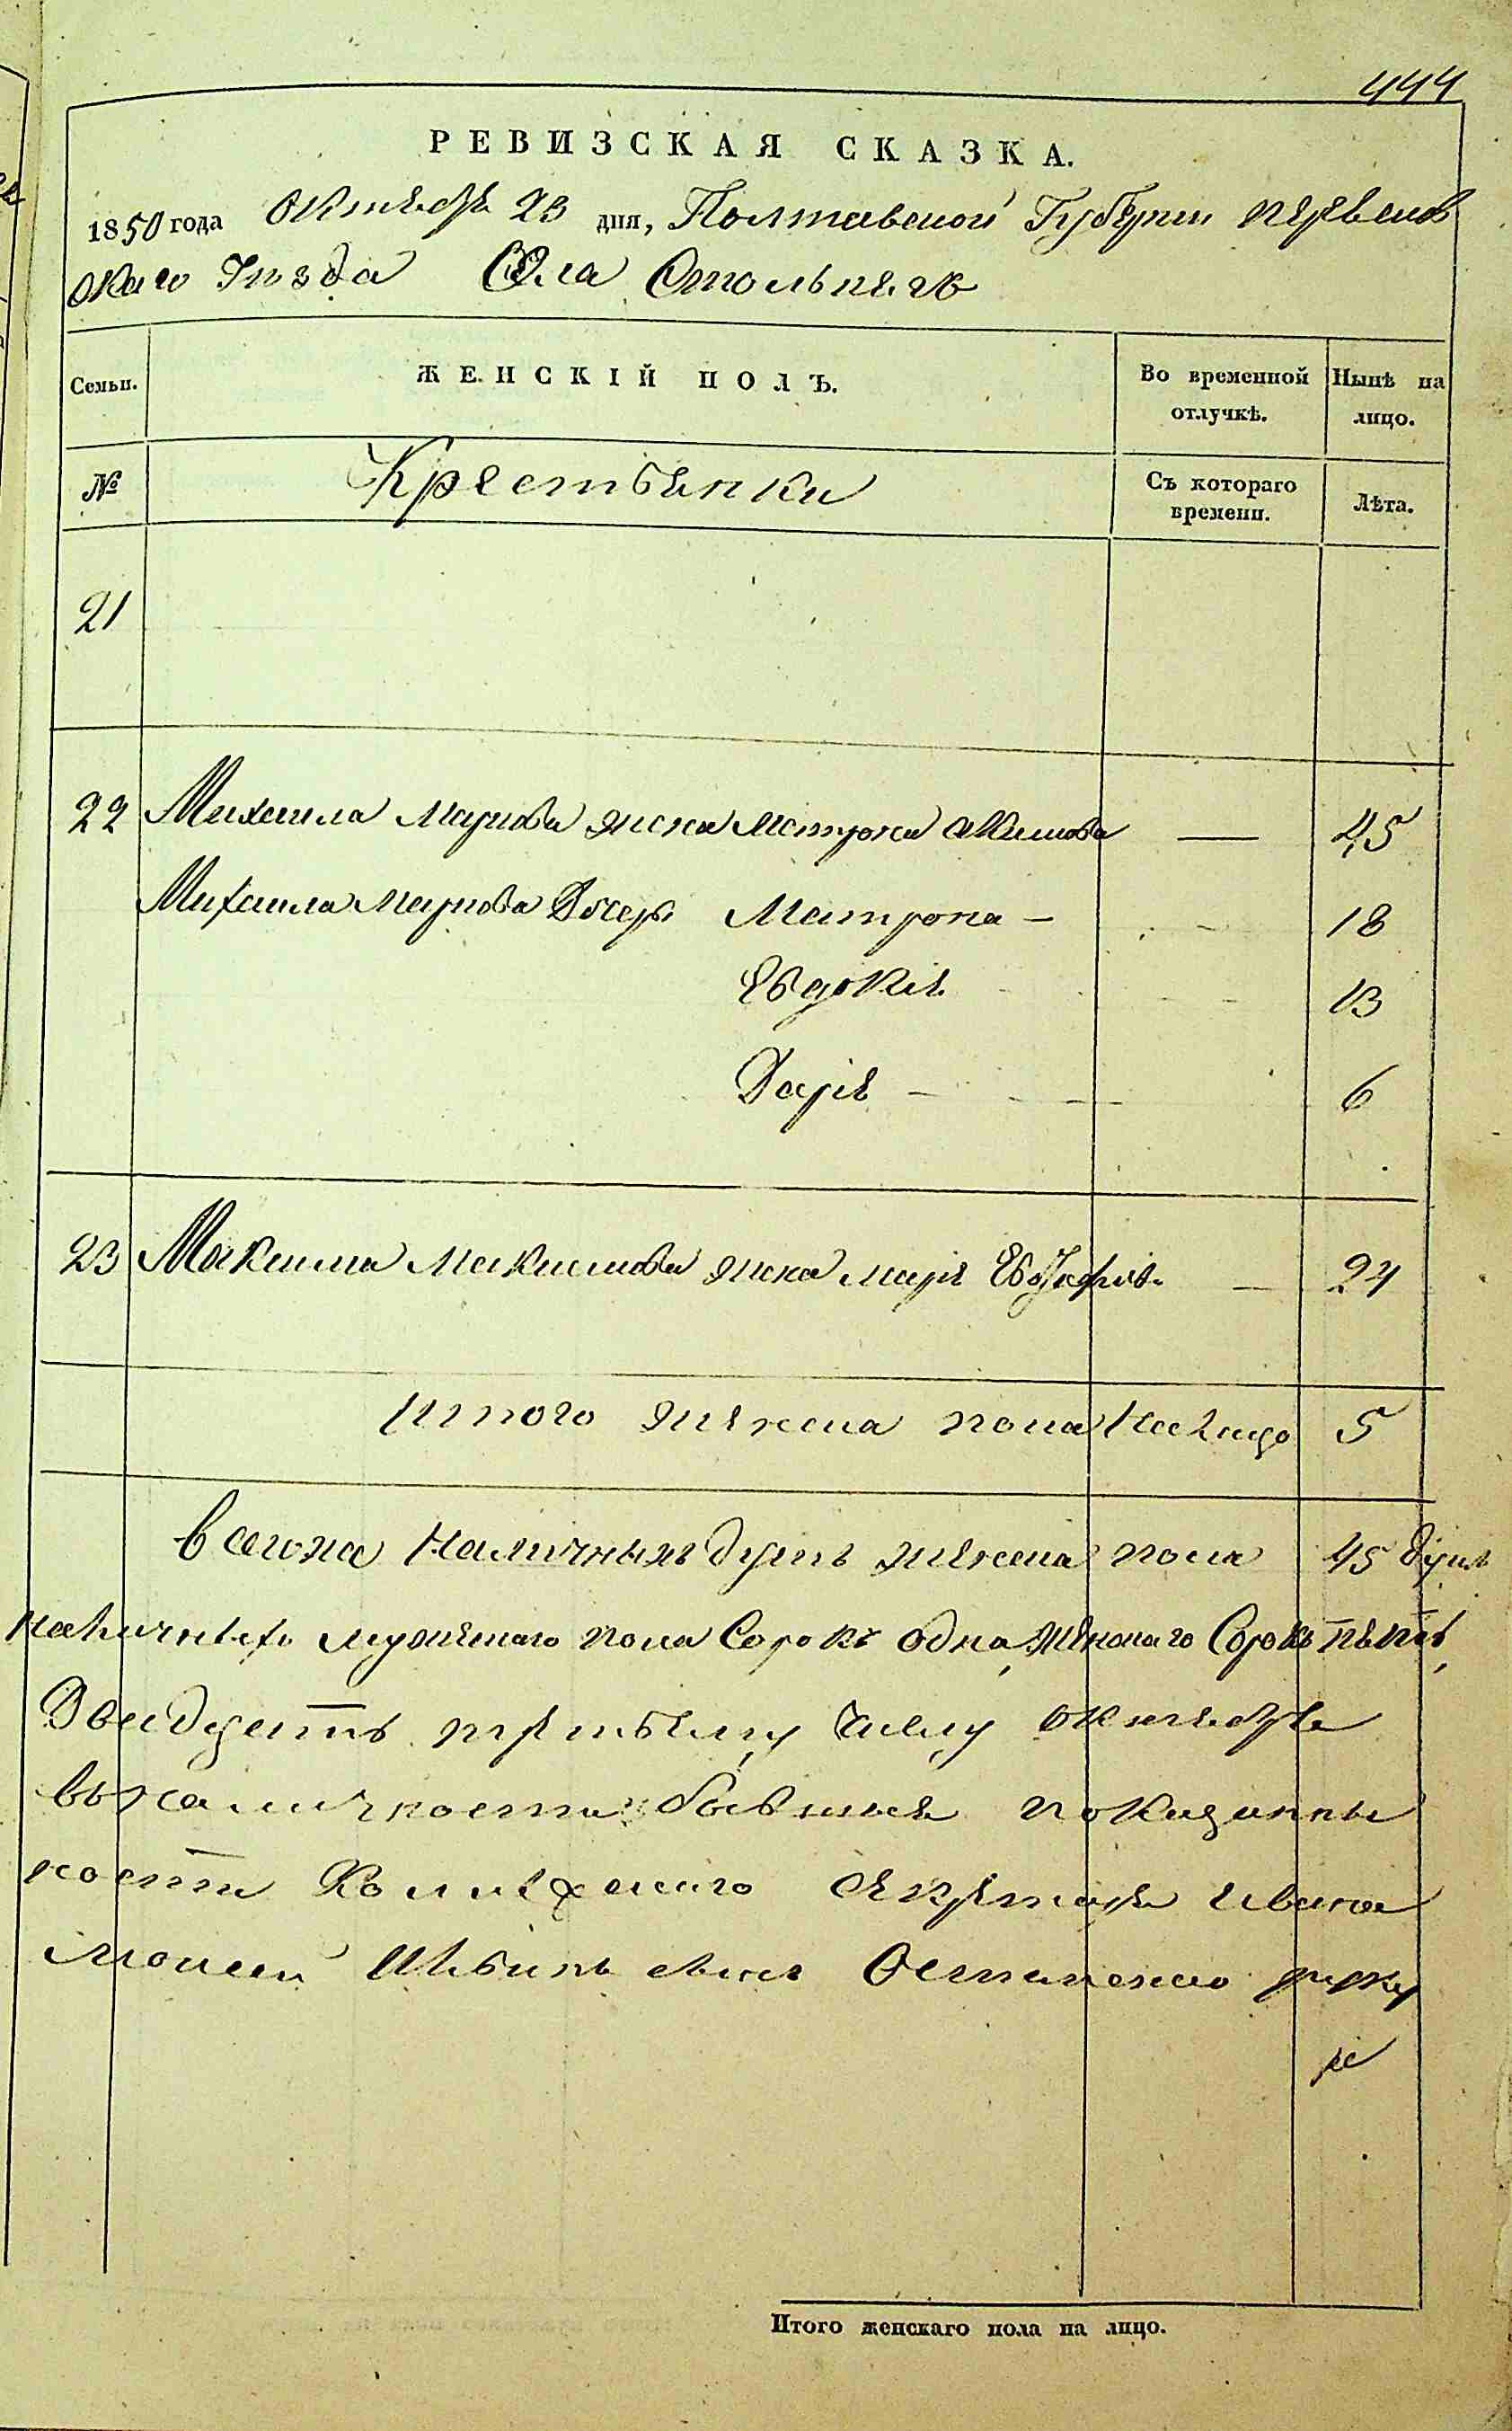 444
РЕВИЗСКАЯ СКАЗКА.
1850 года Октября 23 дня, Полтавской Губернии переяслов
скаго Уезда Села Стольнягъ
Семьи. ЖЕНСКІЙ ПОЛЪ. Во временной отлучкѣ. Нынѣ на лицо.
№ Крестьянки Съ котораго времени. Лѣта.
21
22 Михаила Маркова жена Матрона Акимова — 45
Михаила Маркова дочери Матрона — 18
Евдокія 13
Дарія — 6
23 Максима Максимова жена марія 24
Итого женска пола На лицо 5
Всегона Наличныхъ душъ женска пола 45 душъ
наличныхъ мужескаго пола Сорокъ одна, женскаго Сорокъ пять,
Двадцать третьему числу октября
въ наличности бывшыя
ности секретаря Ивана
руку
Итого женскаго пола на лицо.